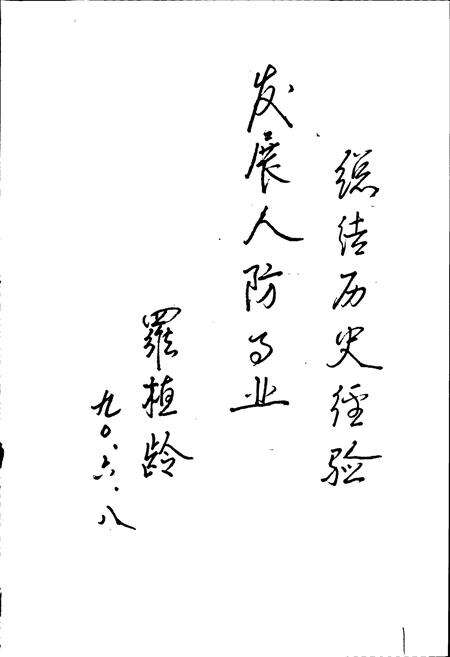 總结历史经验
发展人防事业
羅植龄
九〇.六.八